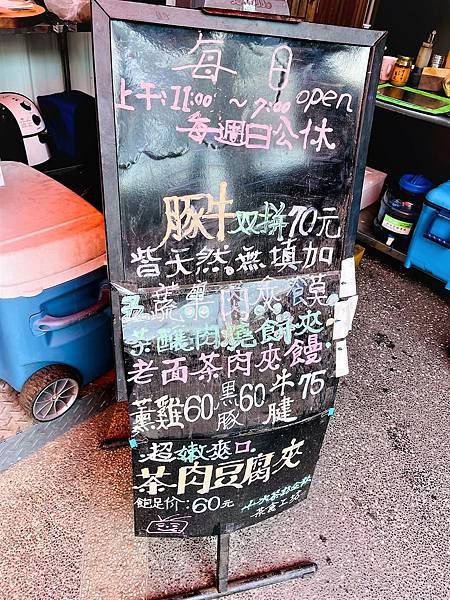 每日
上午:11:00 ~ 7:00 open
每週日公休
豚牛双拼70元
皆天然。無填加
蔬果肉夾饃
茶釀肉燒餅夾
老面茶肉夾饅
薰雞60 黑豚60 牛腱75
超嫩爽口
茶肉豆腐夾
飽足价:60元
茶食工坊